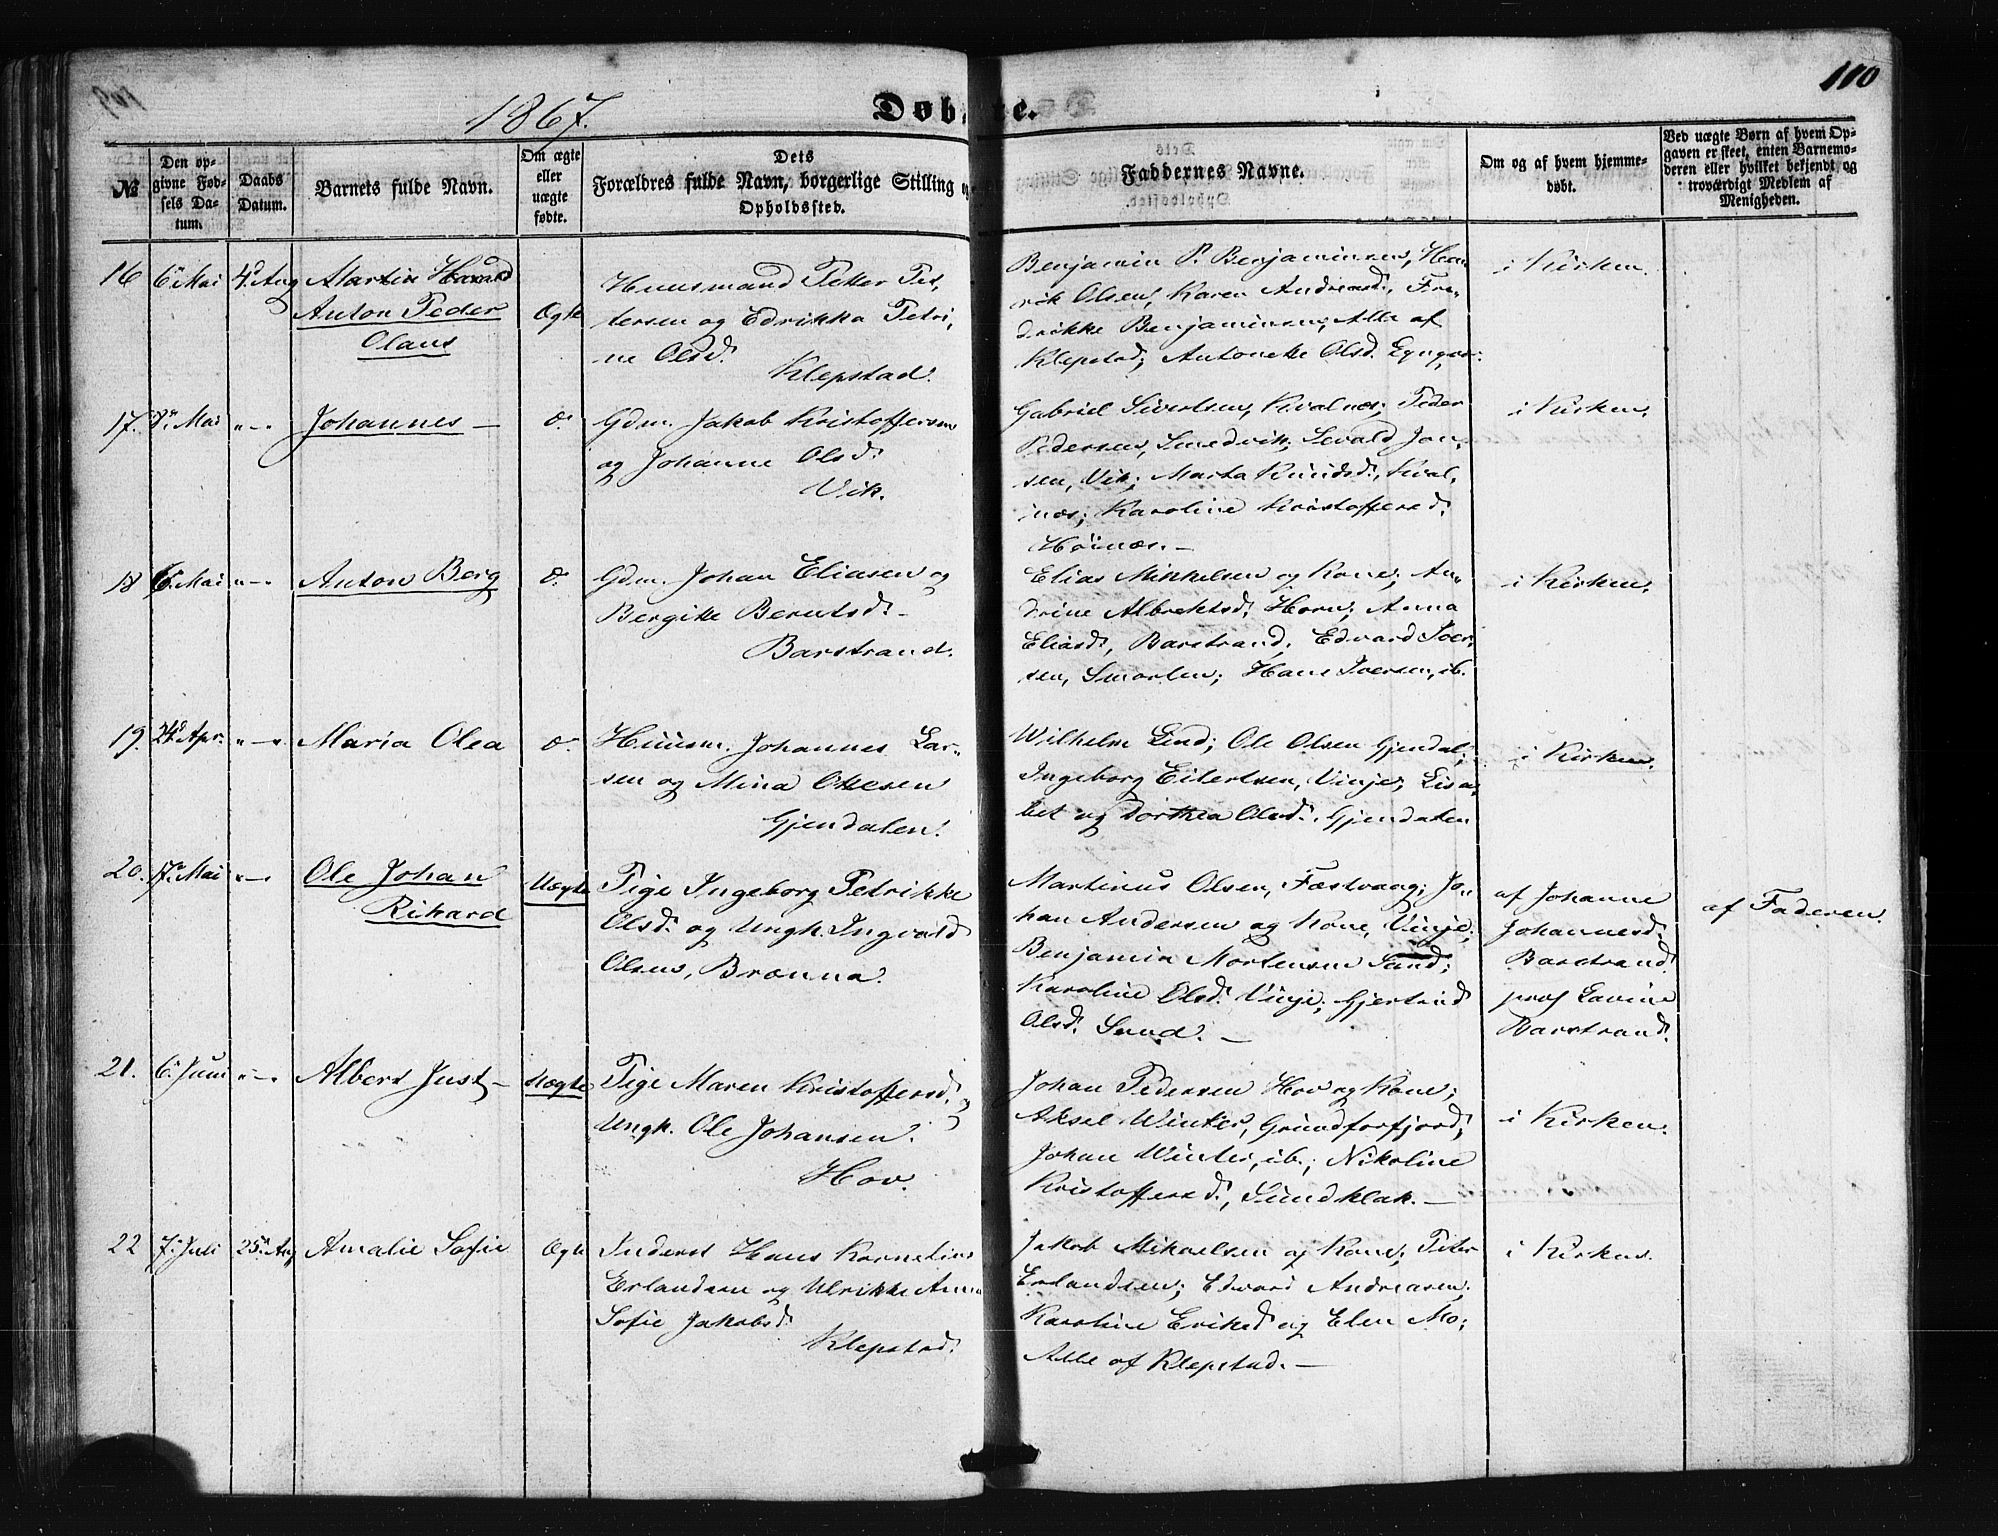 110
1867.
Døbte.
No
Den opgivne Fødsels Datum.
Daabs Datum.
Barnets fulde Navn.
Om ægte eller uægte fødte.
Dets Forældres fulde Navn, borgerlige Stilling og Opholdssted.
Faddernes Navne.
Om og af hvem hjemmedøbt.
Ved uægte Børn af hvem Opgaven er skeet, enten Barnemoderen eller hvilket bekjendt og troværdigt Medlem af Menigheden.
16 6 Mai 4. Aug
Martin
Anton Peder
Olaus
Ægte
Huusmand Petter Pet,
tersen og Edrikka Petri,
ne Olsd.
Klepstad.
Benjamin P. Benjaminsen, Hen
rik Olsen, Karen Andreasd., Fre,
drikke Benjaminsen, Alle af
Klepstad; Antonette Olsd.
i Kirken.
17. 8. Mai "-"
Johannes —
d.
Gdm. Jakob Kristoffersen
og Johanne Olsd.
Vik.
Gabriel Sivertsen, Kvalnæs; Peder
Pedersen, Smedvik; Sevald Jon,
sen, Vik; Marta Knudsd., Kval,
næs; Karoline Kristoffersd.
Høinæs. —
i Kirken.
18 6. Mai "-"
Anton Berg
d.
Gdm. Johan Eliasen og
Bergitte Berntsd. -
Barstrand.
Elias Mikkelsen og Kone; An,
drine Albrektsd., Horn; Anna
Eliasd., Barstrand; Edvard Iver,
sen, Smorten; Hans Iversen, ib.
i Kirken.
19. 24d Apr. "-"
Maria Olea
d.
Huusm. Johannes Lar,
sen og Mina Olsen
Gjendalen.
Wilhelm Lind; Ole Olsen Gjendal,
Ingeborg Eilertsen, Vinje, Lisa,
bet og Dorthea Olsd., Gjendalen
i Kirken.
20. 17. Mai "-"
Ole Johan
Rikard
Uægte
Pige Ingeborg Petrikke
Olsd. og Ungk. Ingvald
Olsen, Brænna.
Martinus Olsen, Fæstvaag; Jo,
han Andersen og Kone, Vinje;
Benjamin Mortensen Sund;
Karoline Olsd. Vinje; Gjertrud
Olsd. Sund. —
af Johanne
Johannesd.
Barstrand
prof Lavine
Barstrand.
af Faderen.
21. 6. Juni "-"
Albert Just —
Uægte
Pige Maren Kristoffersd. og
Ungk. Ole Johansen.
Hov.
Johan Pedersen Hov og Kone;
Aksel Winter, Grundforfjord;
Johan Winter, ib.; Nikoline
Kristoffersd., Sundklak. —
i Kirken.
22 7. Juli 25. Aug
Amalie Sofie
Ægte
Inderst Hans Kornelius
Erlandsen og Ulrikke Anna
Sofie Jakobsd.
Klepstad.
Jakob Mikaelsen og Kone; Peter
Erlandsen; Edvard Andreasen;
Karoline Eriksd. og Elen Mo;
Alle af Klepstad. —
i Kirken.